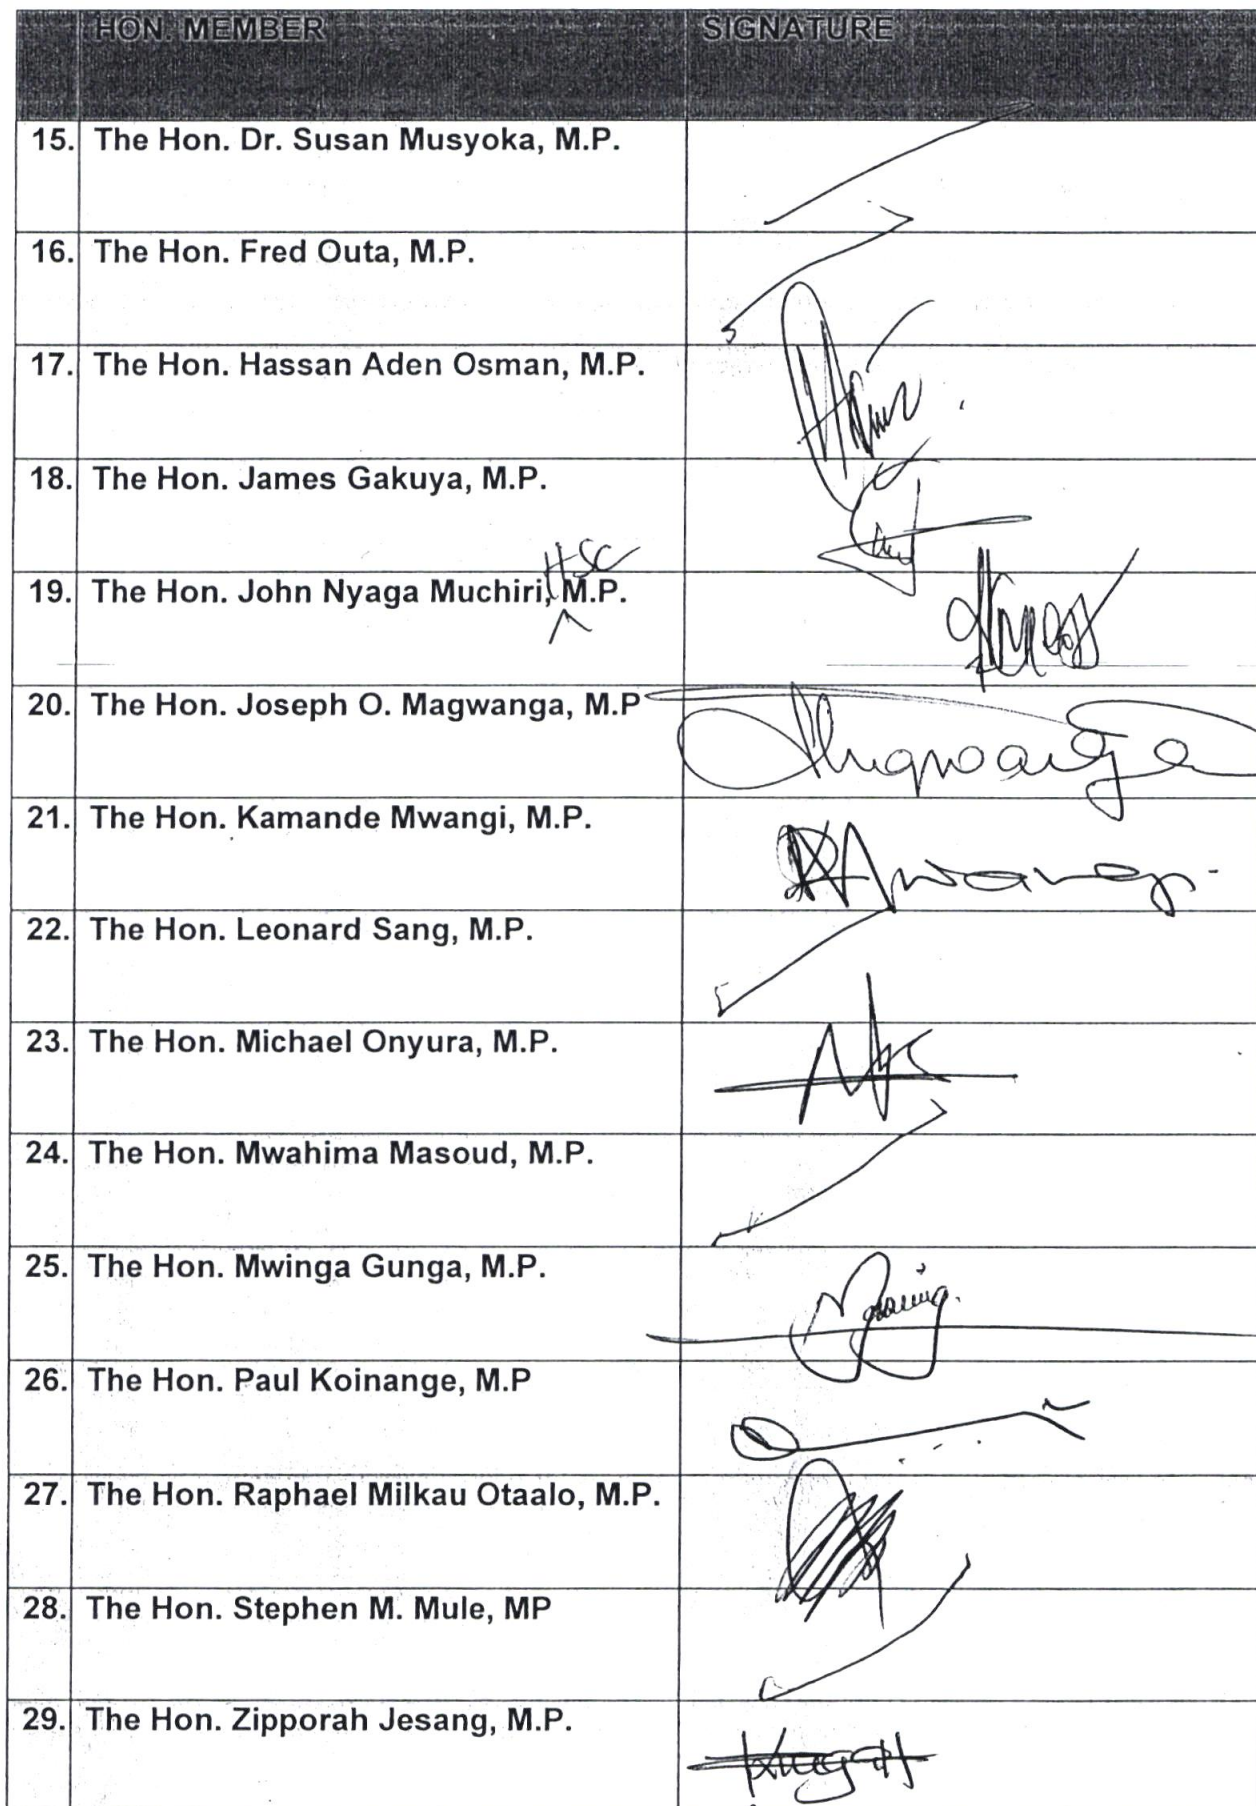 HON. MEMBER SIGNATURE
15. The Hon. Dr. Susan Musyoka, M.P.
16. The Hon. Fred Outa, M.P.
17. The Hon. Hassan Aden Osman, M.P.
18. The Hon. James Gakuya, M.P.
HSC
19. The Hon. John Nyaga Muchiri, M.P.
20. The Hon. Joseph O. Magwanga, M.P
21. The Hon. Kamande Mwangi, M.P.
22. The Hon. Leonard Sang, M.P.
23. The Hon. Michael Onyura, M.P.
24. The Hon. Mwahima Masoud, M.P.
25. The Hon. Mwinga Gunga, M.P.
26. The Hon. Paul Koinange, M.P
27. The Hon. Raphael Milkau Otaalo, M.P.
28. The Hon. Stephen M. Mule, MP
29. The Hon. Zipporah Jesang, M.P.